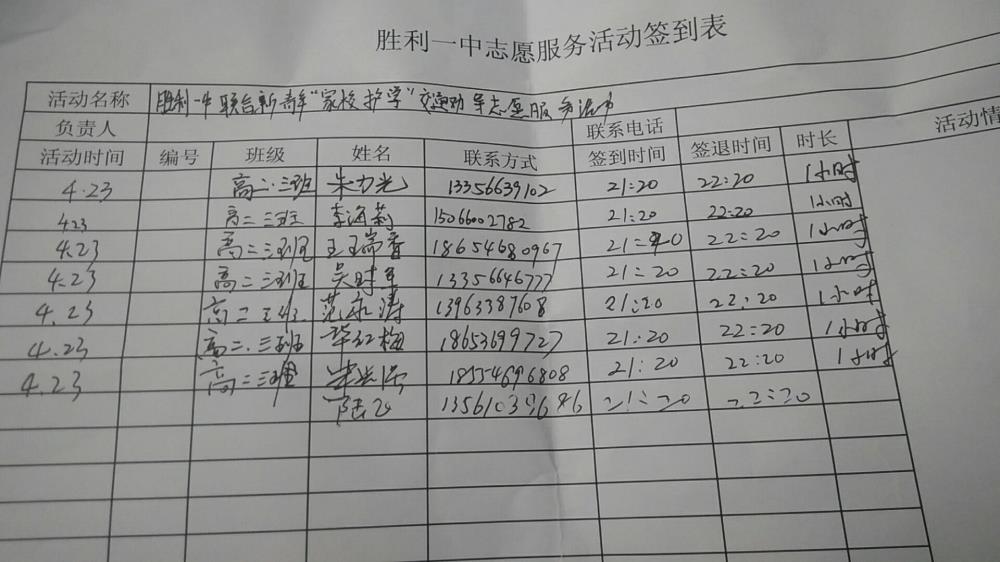 胜利一中志愿服务活动签到表
活动名称 胜利一中联合新青年“家校护学”交通劝导志愿服务活动
负责人 联系电话
活动时间 编号 班级 姓名 联系方式 签到时间 签退时间 时长 活动情
4.23 高二.三班 朱力光 13356639102 21:20 22:20 1小时
4.23 高二三班 李海莉 15066002782 21:20 22:20 1小时
4.23 高二三班 王瑞香 18654680967 21:20 22:20 1小时
4.23 高二三班 吴时军 13356646777 21:20 22:20 1小时
4.23 高二三班 范永涛 13963387608 21:20 22:20 1小时
4.23 高二.三班 华红梅 18653699727 21:20 22:20 1小时
4.23 高二三班 18554696808 21:20 22:20 1小时
21:20 22:20